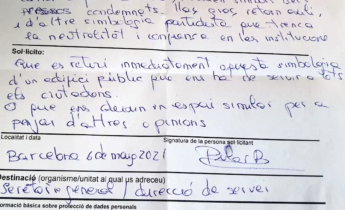 presons condemnats. llaços grocs, retolacions,
i d'altre simbologia partidista que trenca
la neutralitat i confiança en les institucions
Sol·licito:
Que es retiri immediatament aquesta simbologia
d'un edifici públic que ens ha de servir a tots
els ciutadans.
O que ens deixin un espai similar per a
penjar d'altres opinions
Localitat i data
Signatura de la persona sol·licitant
Barcelona 6 de maig 2021
Pilar B
Destinació (organisme/unitat al qual us adreceu)
Secretari general / direcció de servei
Informació bàsica sobre protecció de dades personals